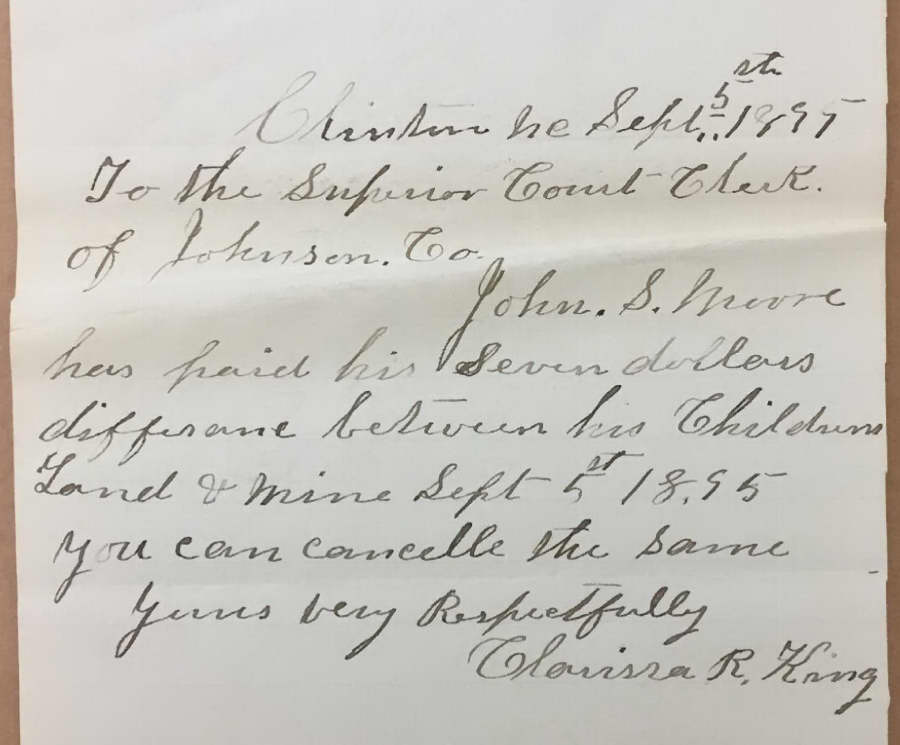 Clinton Nc Sept. 5th 1895
To the Superior Court Clerk.
of Johnson. Co.
John. S. Moore
has paid his Seven dollars
differane between his Childrens
Land & Mine Sept 5st 18.95
You can cancelle the same
Yours very Respectfully
Clarissa R. King